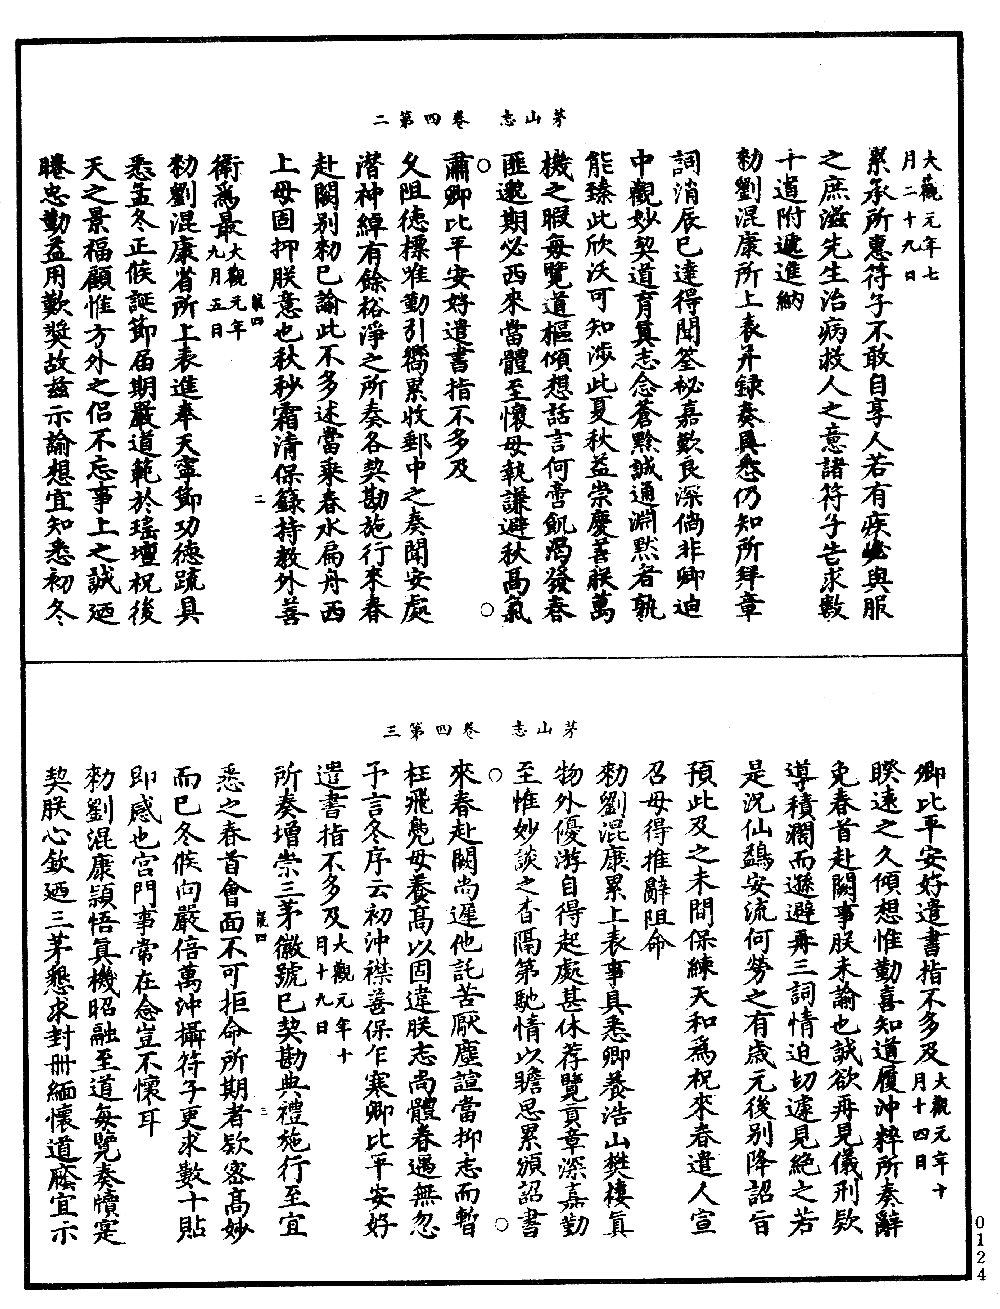 茅山志　卷四第二
大觀元年七
月二十九日
累承所惠符子不敢自享人若有疾必與服
之庶滋先生治病救人之意諸符子告求數
十道附遞進納
勑劉混康所上表并錄奏具悉仍知所拜章
詞消辰已達得聞答祕嘉歎良深倘非卿迪
中觀妙契道育真志念蒼黔誠通淵默者孰
能臻此欣沃可知涉此夏秋益崇慶善朕萬
機之暇每覽道樞傾想話言何啻飢渴發春
匪遨期必西來當體至懷毋執謙避秋高氣
肅卿比平安好遣書指不多及
久阻德標唯勤引嚮累收郵中之奏聞安處
潛神綽有餘裕淨之所奏各契勘施行來春
赴闕別勑已諭此不多述當乘春水扁舟西
上毋固抑朕意也秋秒霜清保籙持教外善
衛爲最
大觀元年
九月五日
龍四
二
勑劉混康省所上表進奉天寧節功德䟽具
悉孟冬正候誕節届期嚴道範於瑤壇祝後
天之景福顧惟方外之侶不忘事上之誠廼
睠忠勤益用歎奬故兹示諭想宜知悉初冬
茅山志　卷四第三
卿比平安好遣書指不多及
大觀元年十
月十四日
睽遠之久傾想惟勤喜知道履沖粹所奏辭
免春首赴闕事朕未諭也誠欲再見儀刑欵
導積瀾而遜避再三詞情迫切遽見絶之若
是況仙鷁安流何勞之有歳元後別降詔旨
預此及之未間保練天和爲祝來春遣人宣
召毋得推辭阻命
勑劉混康累上表事具悉卿養浩山樊棲真
物外優游自得起處甚休荐覽貢章深嘉勤
至惟妙談之杳隔第馳情以瞻思累頒詔書
來春赴闕尚遲他託苦厭塵諠當抑志而暫
枉飛凫毋養高以固違朕志尚體眷遇無忽
予言冬序云初沖襟善保乍寒卿比平安好
遣書指不多及
大觀元年十
月十九日
所奏增崇三茅徽號已契勘典禮施行至宜
龍四
三
悉之春首會面不可拒命所期者欵密高妙
而已冬候向嚴倍萬沖攝符子更求數十貼
即感也宫門事常在念豈不懷耳
勑劉混康頴悟真機昭融至道每覽奏牘寔
契朕心欽廼三茅懇求封冊緬懷道廕宜示
0124